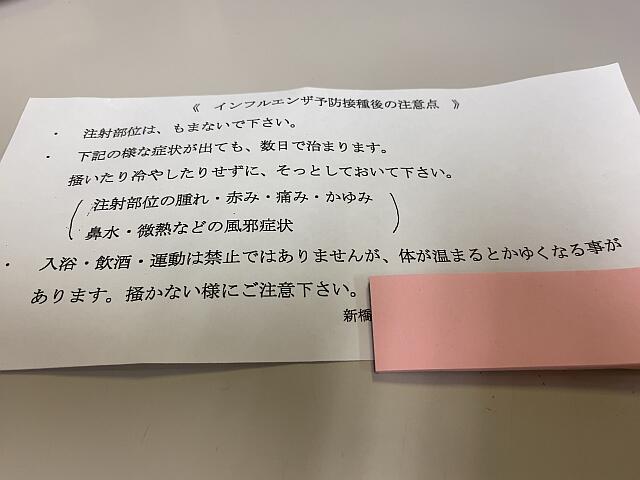 《 インフルエンザ予防接種後の注意点 》
・ 注射部位は、もまないで下さい。
・ 下記の様な症状が出ても、数日で治まります。
掻いたり冷やしたりせずに、そっとしておいて下さい。
(注射部位の腫れ・赤み・痛み・かゆみ
鼻水・微熱などの風邪症状)
・ 入浴・飲酒・運動は禁止ではありませんが、体が温まるとかゆくなる事が
あります。掻かない様にご注意下さい。
新橋